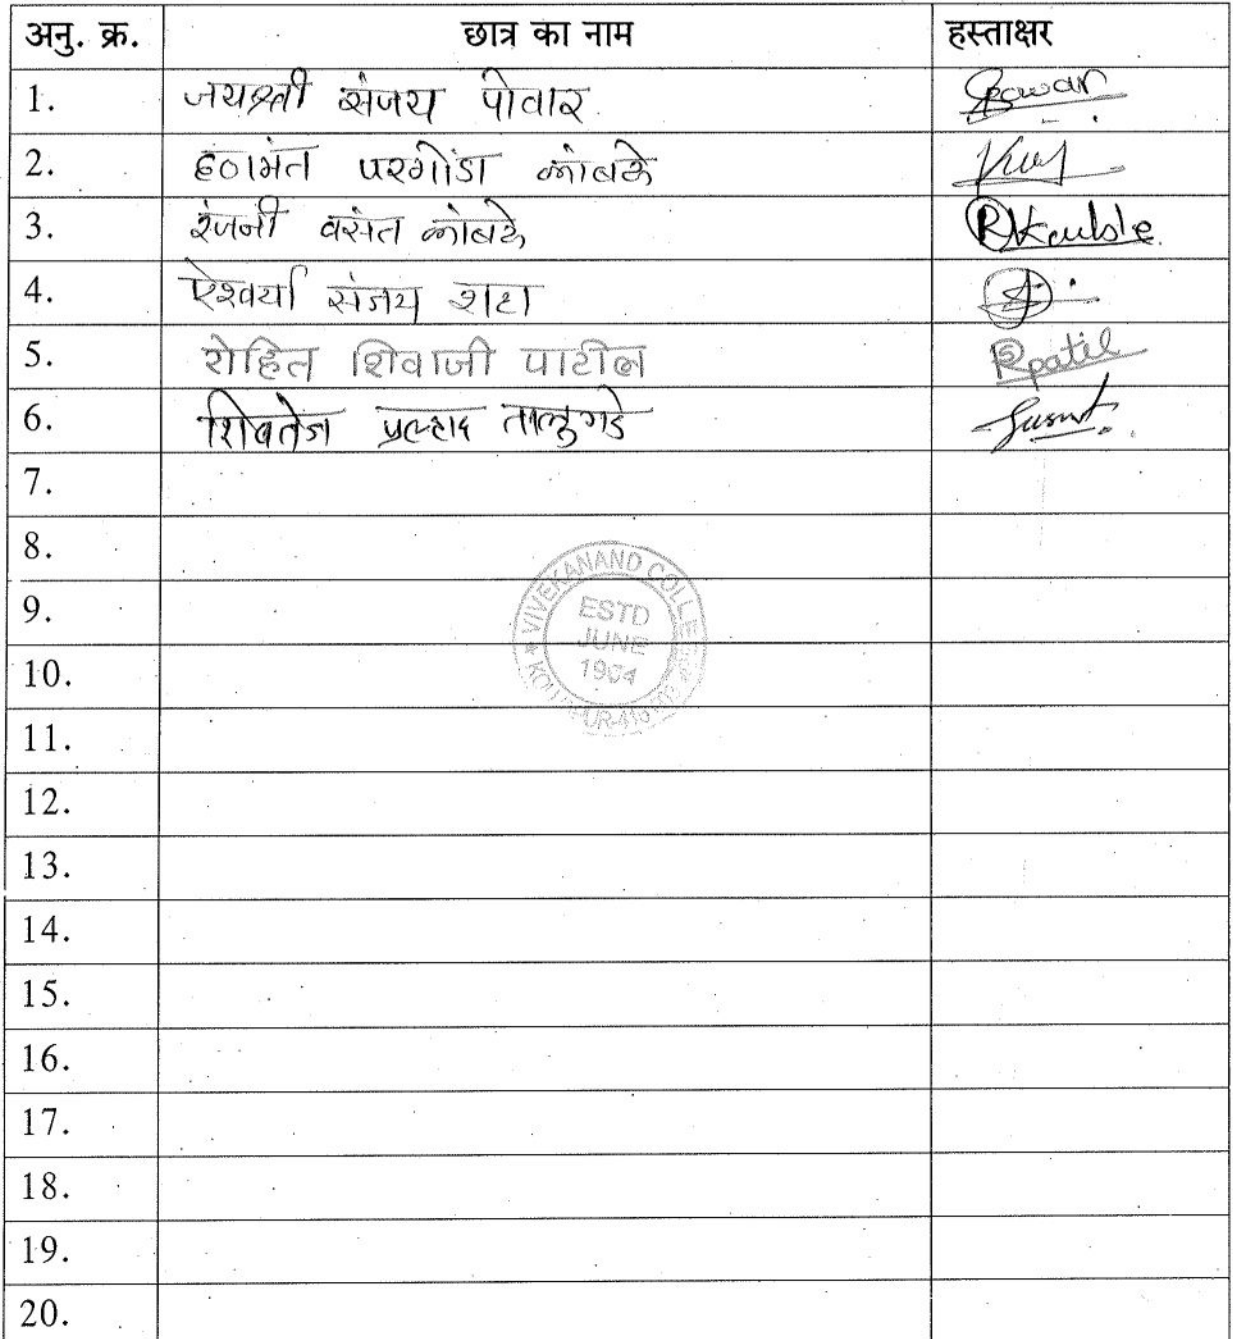 अनु. क्र. छात्र का नाम हस्ताक्षर
1. जयश्री संजय पोवार Pawar
2. हणमंत परगोंडा कांबळे
3. रंजनी वसंत कांबळे RKamble
4. ऐश्वर्या संजय शहा
5. रोहित शिवाजी पाटील Rpatil
6. शिवतेज प्रल्हाद तालुगडे
7.
8.
9.
10.
11.
12.
13.
14.
15.
16.
17.
18.
19.
20.
VIVEKANAND COLLEGE
ESTD
JUNE
1964